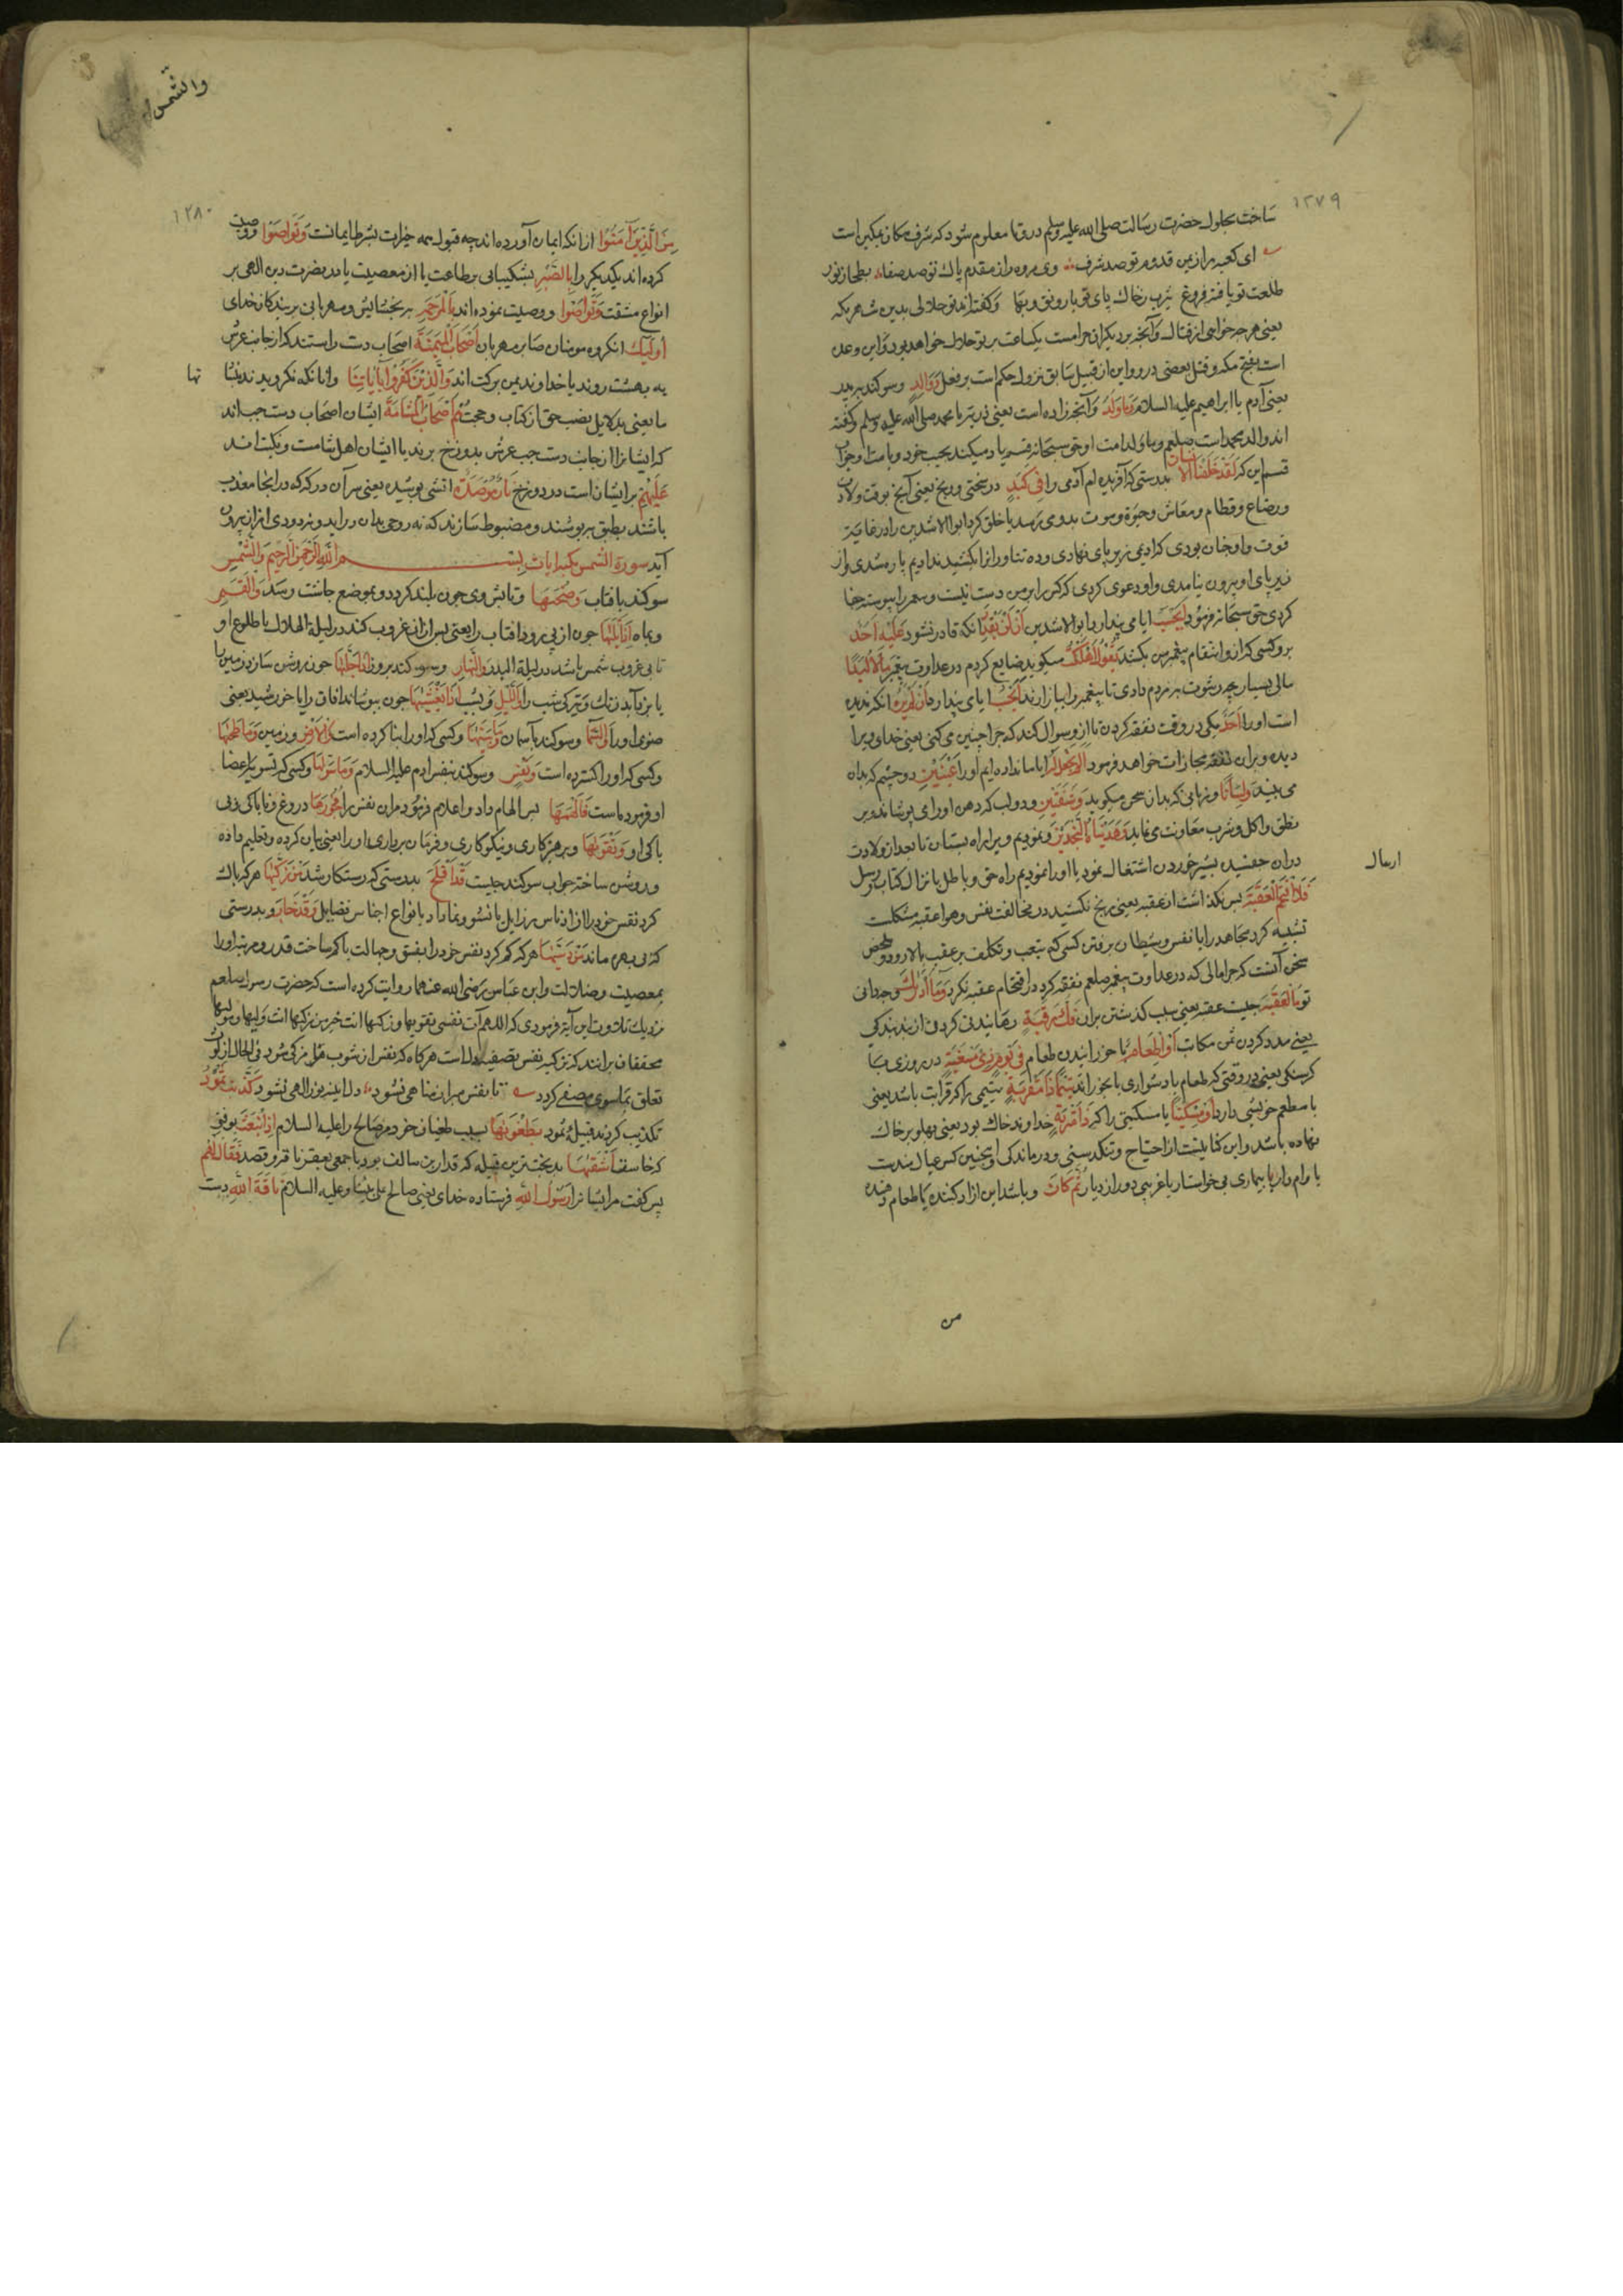 ۱۲۷۹
ساخت بحلول حضرت رسالت صلی الله علیه وسلم در وی تا معلوم شود که شرف مکان بمکین است
ای کعبه را ز یمن قدوم تو صد شرف وی مروه را ز مقدم پاک تو صد صفا بطحا ز نور
طلعت تو یافته فروغ یثرب ز خاک پای تو با رونق و بها وگفته‌اند تو حلالی بدین شهر مکه
یعنی هرچه خواهی از قتال وآنچه بر دیکران حرامست یکساعت بر تو حلال خواهد بود واین وعده
است بفتح مکه وقتل بعضی در و واین از قبیل سابق نزول حکم است بر فعل وَوَالِدٍ وسوکند به پدر
یعنی آدم یا ابراهیم علیه السلام وَمَا وَلَدَ وآنچه زاده است یعنی ذریت یا محمد صلی الله علیه وسلم وگفته
اند والد محمد است صلعم وما ولد امت او حق سبحانه قسم یاد میکند بحبیب خود وبامت او وجواب
قسم این که لَقَدْ خَلَقْنَا الْإِنسَانَ بدرستی که آفریده ام آدمی را فِی کَبَدٍ در سختی و رنج یعنی آنج بوقت ولادت
ورضاع وفطام ومعاش وحیوة وموت بدو می رسد یا خلق کرد ابوالاشدین را در غایت
قوت واو چنان بودی که ادیمی زیر پای نهادی وده تن اورا کشیدندی ادیم پاره شدی واز
زیر پای او بیرون نیامدی واو دعوی کردی که کس را بر من دست نیست
کردی حق سبحانه فرمود أَیَحْسَبُ آیا می پندارد ابوالاشدین أَنْ لَنْ یَقْدِرَ آنکه قادر نشود عَلَیْهِ أَحَدٌ
برو کسی که ازو انتقام پیغمبر من بکشد یَقُولُ أَهْلَکْتُ میکوید ضایع کردم در عداوت پیغمبر مَالًا لُبَدًا
مالی بسیار چه رشوت بمردم دادی تا پیغمبر را بیازارند أَیَحْسَبُ آیا می پندارد أَنْ لَمْ یَرَهُ آنکه ندیده
است اورا أَحَدٌ یکی در وقت نفقه کردن تا ازو سوال کند که چرا چنین می کنی یعنی خدای ویرا
دیده وبران نفقه مجازات خواهد فرمود أَلَمْ نَجْعَلْ لَهُ آیا ما نداده ایم اورا عَیْنَیْنِ دو چشم که بدان
می بیند وَلِسَانًا وزبانی که بدان سخن میکوید وَشَفَتَیْنِ ودو لب که دهن اورا می پوشاند وبر
نطق واکل وشرب معاونت می نماید وَهَدَیْنَاهُ النَّجْدَیْنِ ونمودیم ویرا راه پستان تا بعد از ولادت
دران جفسید بشیر خوردن اشتغال نمود یا اورا نمودیم راه حق وباطل بانزال کتاب و رسل
ارسال
فَلَا اقْتَحَمَ الْعَقَبَةَ پس نکذاشت از عقبه یعنی رنج نکشید در مخالفت نفس وهوا عقبه مشکلست
تشبیه کرد مجاهد را با نفس وشیطان برفتن کسی که بتعب وتکلف بر عقبه بالا رود وملخص
سخن آنست که چرا مالی که در عداوت پیغمبر صلعم نفقه کرد در اقتحام عقبه نکرد وَمَا أَدْرَاکَ وچه دانی
تو مَا الْعَقَبَةُ چیست عقبه یعنی سبب کذشتن بران فَکُّ رَقَبَةٍ رهانیدن کردن از بند بندکی
یعنی مدد کردن ثمن مکاتب أَوْ إِطْعَامٌ یا خورانیدن طعام فِی یَوْمٍ ذِی مَسْغَبَةٍ در روزی با
کرسنکی یعنی در وقتی که طعام بدشواری یا بخوراند یَتِیمًا ذَا مَقْرَبَةٍ یتیمی را که قرابت باشد یعنی
با مطعم خویشی دارد أَوْ مِسْکِینًا یا مسکینی را که ذَا مَتْرَبَةٍ خداوند خاک بود یعنی پهلو بر خاک
نهاده باشد واین کنایتست از احتیاج وتنکدستی ودرماندکی او وچنین کس عیال مندست
یا وام دار یا بیماری بی خواستار یا غریبی دور از دیار ثُمَّ کَانَ وباشد این آزاد کننده یا طعام دهنده
من
والشمس
۱۲۸۰
مِنَ الَّذِینَ آمَنُوا از آنانکه ایمان آورده اند چه قبول همه خیرات بشرط ایمانست وَتَوَاصَوْا ووصیت
کرده اند یکدیکر را بِالصَّبْرِ بشکیبایی بر طاعت یا از معصیت یا بر نصرت دین الهی بر
انواع مشقت وَتَوَاصَوْا ووصیت نموده اند بِالْمَرْحَمَةِ بر بخشایش ومهربانی بر بندکان خدای
أُولَئِکَ آنکروه مومنان صابر مهربان أَصْحَابُ الْمَیْمَنَةِ اصحاب دست راستند که از جانب عرش
به بهشت روند یا خداوند یمن برکت اند وَالَّذِینَ کَفَرُوا بِآیَاتِنَا وآنانکه نکرویدند بنشا
نها
ما یعنی بدلایل نصب حق از کتاب وحجت هُمْ أَصْحَابُ الْمَشْأَمَةِ ایشان اصحاب دست چب اند
که ایشانرا از جانب دست چب عرش بدوزخ برند یا ایشان اهل شامت ونکبت اند
عَلَیْهِمْ بر ایشان است در دوزخ نَارٌ مُؤْصَدَةٌ آتشی پوشیده یعنی سر آن درکه که در انجا معذب
باشند بطبق بپوشند ومضبوط سازند که نه روحی بدان در اید ونه دودی از ان بیرون
آید سورة الشمس مکیه ایات بسم الله الرحمن الرحیم وَالشَّمْسِ
سوکند بافتاب وَضُحَیهَا وتابش وی چون بلند کردد وبموضع چاشت رسد وَالْقَمَرِ
وبماه إِذَا تَلَیهَا چون از پی رود افتاب را یعنی پس ازان غروب کند در لیلة الهلال یا طلوع او
تابی غروب شمس باشد در لیلة البدر وَالنَّهَارِ وسوکند بروز إِذَا جَلَّیهَا چون روشن سازد زمین را
وَاللَّیْلِ وبشب إِذَا یَغْشَیهَا چون بپوشاند افاق را یا خورشید یعنی
ضوی اورا وَالسَّمَاءِ وسوکند بآسمان وَمَا بَنَیهَا وکسی که اورا بنا کرده است وَالْأَرْضِ وزمین وَمَا طَحَیهَا
وکسی که اورا کسترده است وَنَفْسٍ وسوکند بنفس ادم علیه السلام وَمَا سَوَّیهَا وکسی که تسویه اعضا
او فرموده است فَأَلْهَمَهَا پس الهام داد واعلام فرمود مران نفس را فُجُورَهَا دروغ وناباکی وبی
باکی او وَتَقْوَیهَا وپرهیزکاری ونیکوکاری وفرمان برداری اورا یعنی بیان کرده وتعلیم داده
وروشن ساخته جواب سوکند چیست قَدْ أَفْلَحَ بدرستی که رستکار شد مَنْ زَکَّیهَا هر که پاک
کرد نفس خود را از ادناس رزایل یا نشو ونما داد بانواع اجناس فضایل وَقَدْ خَابَ وبدرستی
که بی بهره ماند مَنْ دَسَّیهَا هر که کم کرد نفس خود را بفسق وجهالت یا کم ساخت قدر ومرتبه اورا
بمعصیت وضلالت وابن عباس رضی الله عنهما روایت کرده است که حضرت رسول صلعم
نزدیک تلاوت این آیه فرمودی که اللهم آت نفسی تقویها وزکیها انت خیر من زکیها انت ولیها ومولیها
محققان برانند که تزکیه نفس تصفیه دل است هرکاه که نفس از شوب هوا مزکی شود فی الحال از لوث
تعلق بماسوی مصفی کردد تا نفس مبرا ز مناهی نشود دل اینه نور الهی نشود کَذَّبَتْ ثَمُودُ
تکذیب کردند قبیله ثمود بِطَغْوَیهَا بسبب طغیان خود مر صالح را علیه السلام إِذِ انْبَعَثَ
که خاست أَشْقَیهَا بدبخت ترین قبیله که قدار بن سالف بود با جمعی بعقر ناقه و قصد فَقَالَ لَهُمْ
پس کفت مر ایشانرا رَسُولُ اللَّهِ فرستاده خدای یعنی صالح علی نبینا وعلیه السلام نَاقَةَ اللَّهِ دست